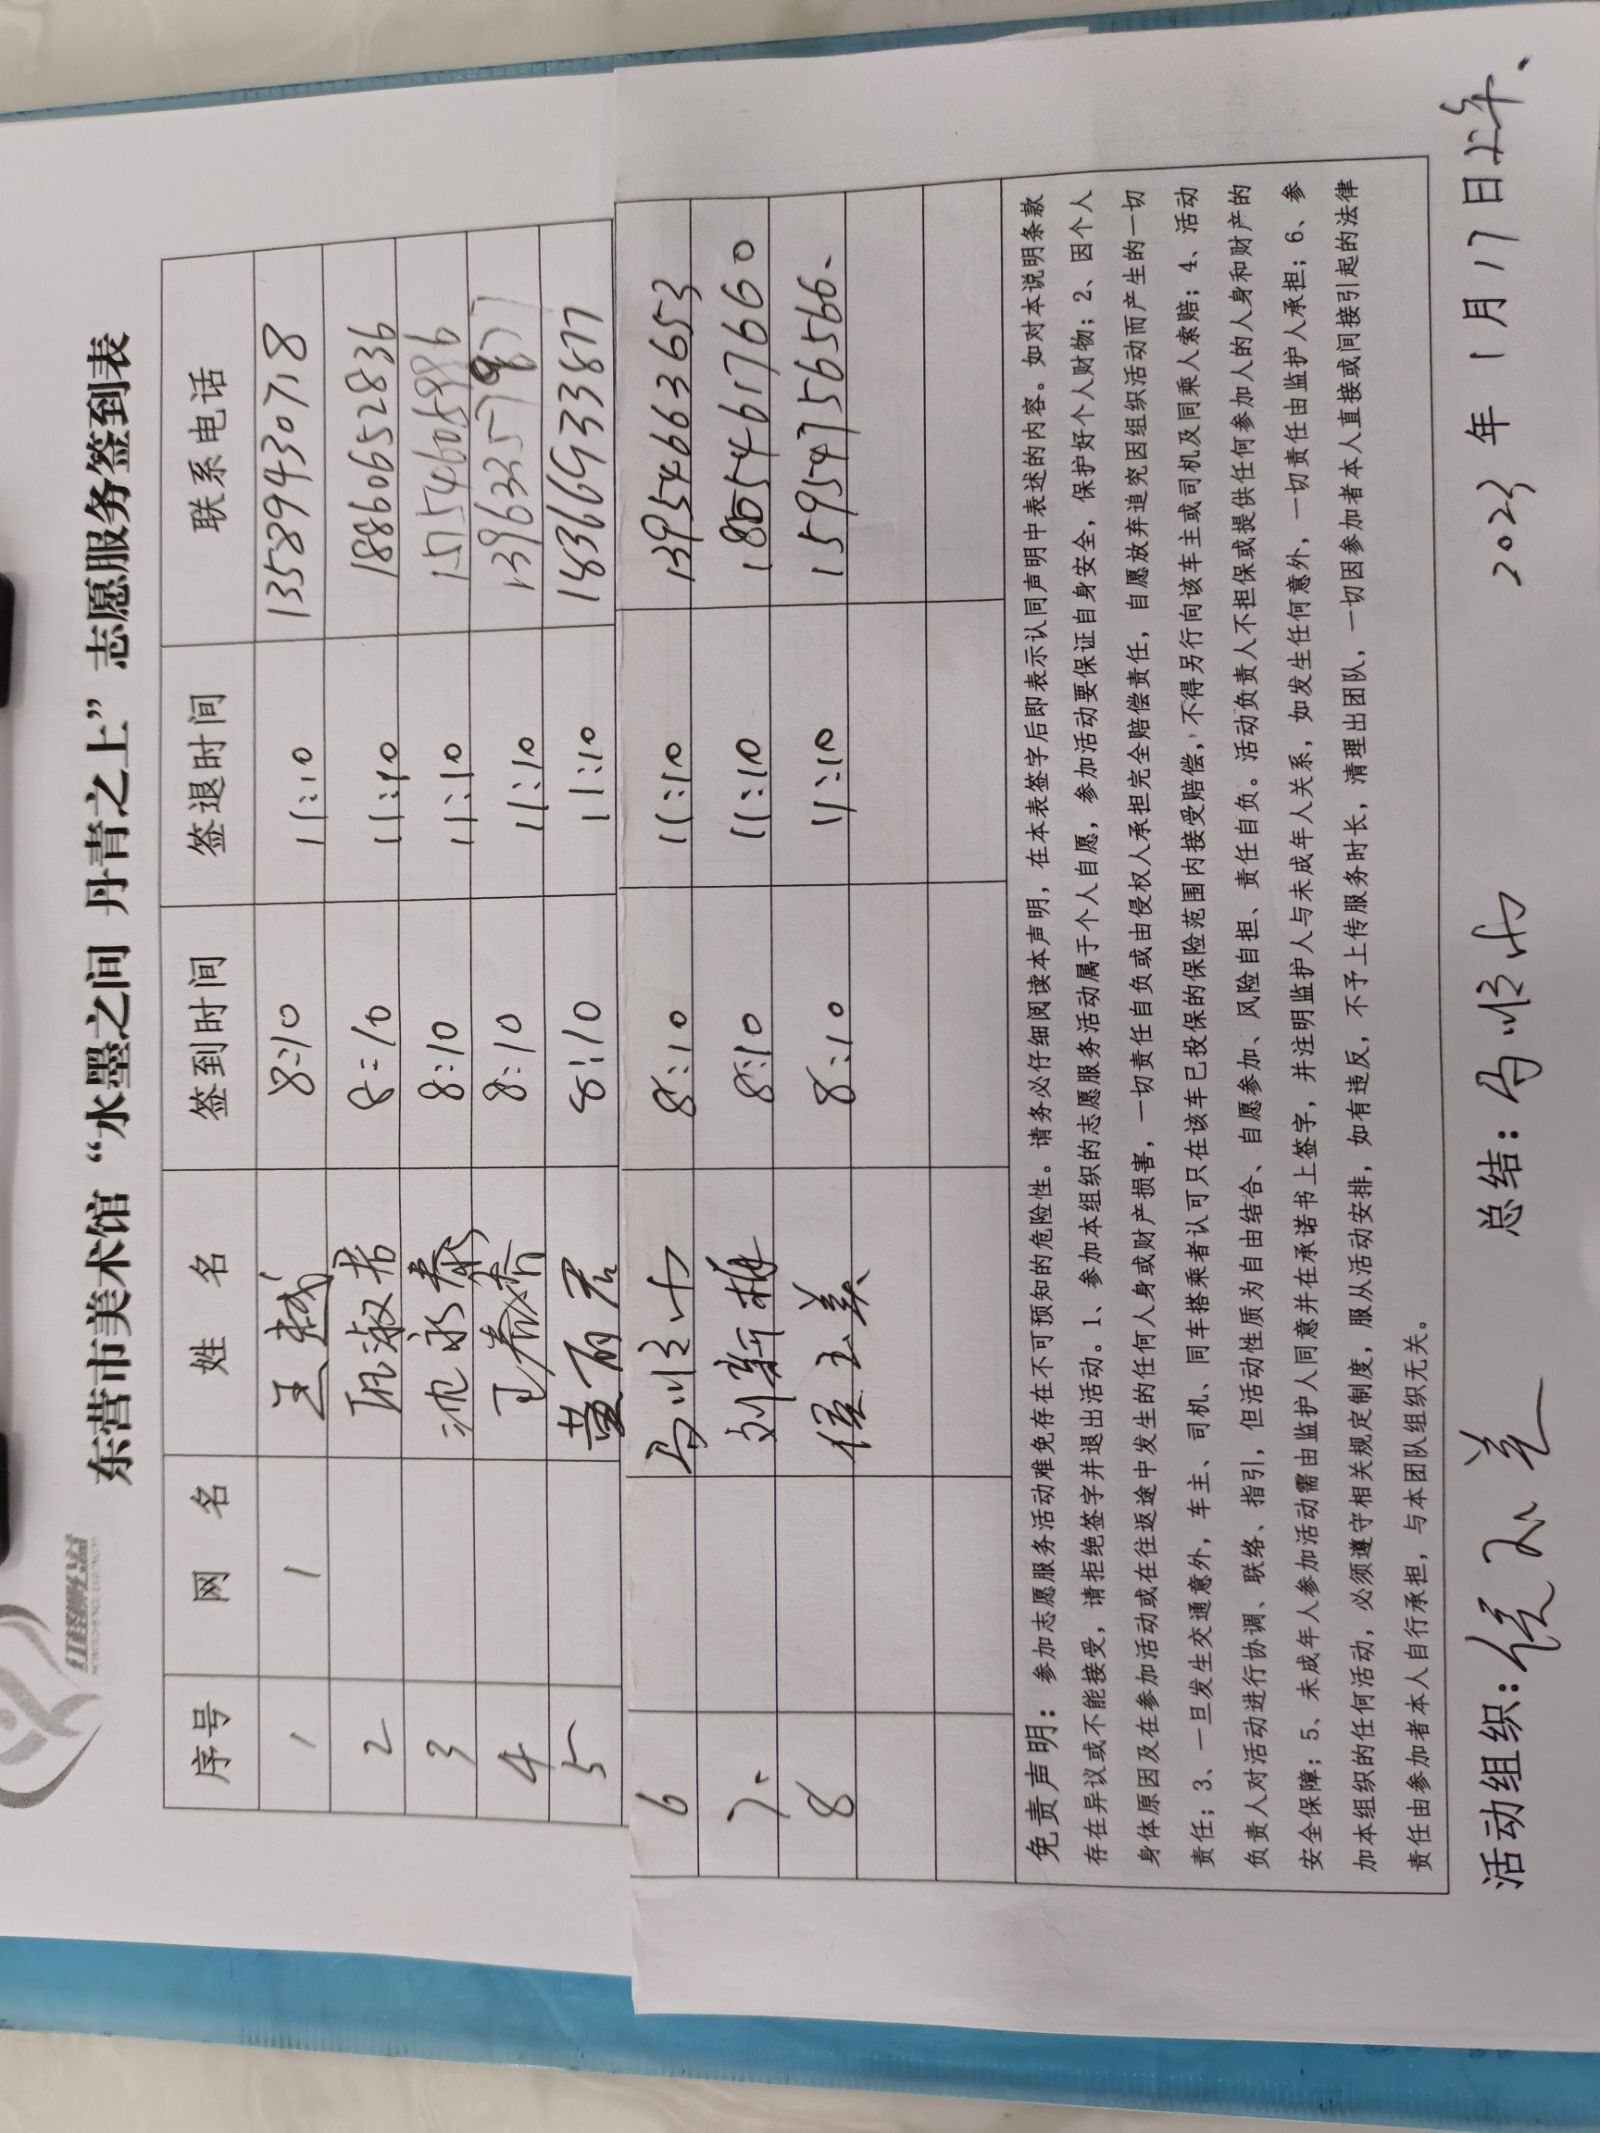 红格子公益
东营市美术馆“水墨之间 丹青之上”志愿服务签到表
序号 网 名 姓 名 签到时间 签退时间 联系电话
1 1 王越 8:10 11:10 13589430718
2 淑君 8:10 11:10 18860652836
3 沈永泰 8:10 11:10
4 王春香 8:10 11:10
5 黄丽君 8:10 11:10 18366933877
6 8:10 11:10 13954663653
7 刘新梅 8:10 11:10 18054617660
8 侯玉美 8:10 11:10 15954756566
免责声明：参加志愿服务活动难免存在不可预知的危险性。请务必仔细阅读本声明，在本表签字后即表示认同声明中表述的内容。如对本说明条款
存在异议或不能接受，请拒绝签字并退出活动。1、参加本组织的志愿服务活动属于个人自愿，参加活动要保证自身安全，保护好个人财物；2、因个人
身体原因及在参加活动或在往返途中发生的任何人身或财产损害，一切责任自负或由侵权人承担完全赔偿责任，自愿放弃追究因组织活动而产生的一切
责任；3、一旦发生交通意外，车主、司机、同车搭乘者认可只在该车已投保的保险范围内接受赔偿，不得另行向该车主或司机及同乘人索赔；4、活动
负责人对活动进行协调、联络、指引，但活动性质为自由结合、自愿参加、风险自担、责任自负。活动负责人不担保或提供任何参加人的人身和财产的
安全保障；5、未成年人参加活动需由监护人同意并在承诺书上签字，并注明监护人与未成年人关系，如发生任何意外，一切责任由监护人承担；6、参
加本组织的任何活动，必须遵守相关规定制度，服从活动安排，如有违反，不予上传服务时长，清理出团队，一切因参加者本人直接或间接引起的法律
责任由参加者本人自行承担，与本团队组织无关。
活动组织：侯玉美 总结： 2023 年 1 月 17 日 上午